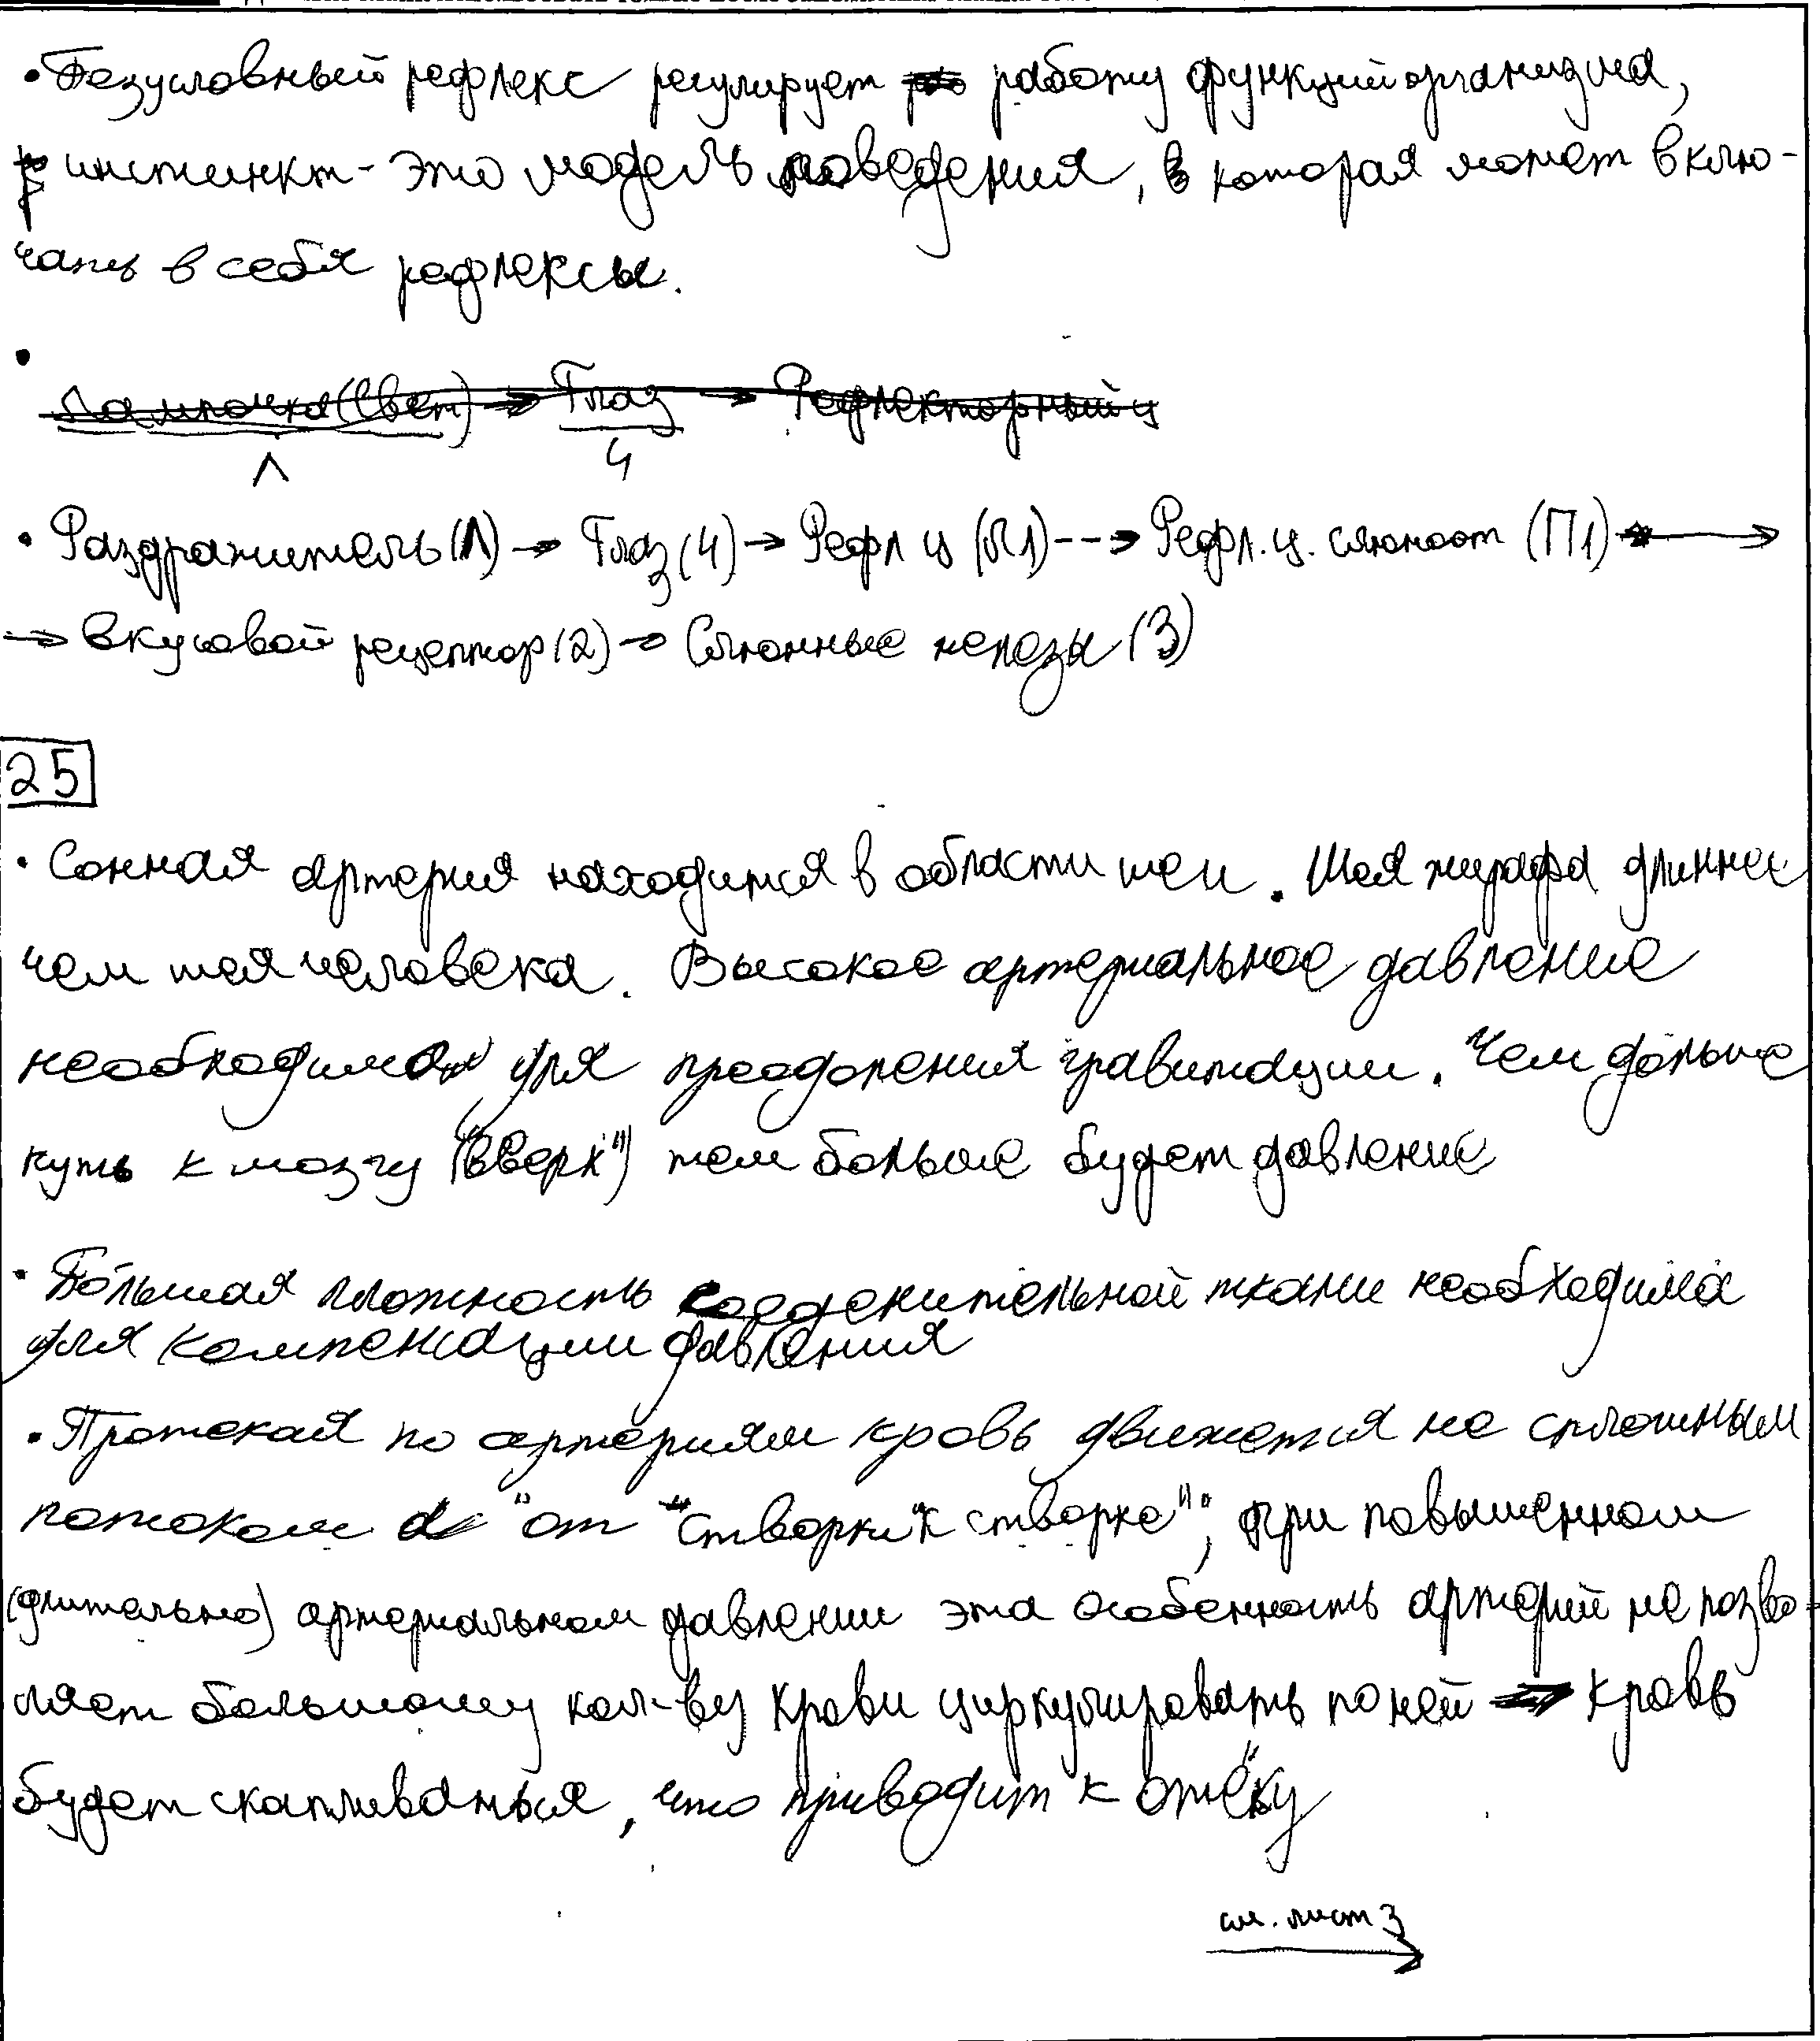 • Безусловный рефлекс регулирует работу функций организма,
инстинкт - это модель поведения, в которая может вклю-
чать в себя рефлексы.
•
Лампочка (свет) → Глаз → Рефлекторный ц
Л 4
• Раздражитель (Л) → Глаз (4) → Рефл ц (П1) --> Рефл. ц. слюноот (П1) →
→ Вкусовой рецептор (2) → Слюнные железы (3)
25
• Сонная артерия находится в области шеи. Шея жирафа длиннее
чем шея человека. Высокое артериальное давление
необходимо для преодоления гравитации. Чем дольше
путь к мозгу ("вверх") тем больше будет давление
• Бо́льшая плотность соединительной ткани необходима
для компенсации давления
• Протекая по артериям кровь движется не сплошным
потоком а "от "створки" к створке"", при повышенном
(длительно) артериальном давлении эта особенность артерий не позво-
ляет большому кол-ву крови циркулировать по ней → кровь
будет скапливаться, что приводит к отёку
см. лист 3